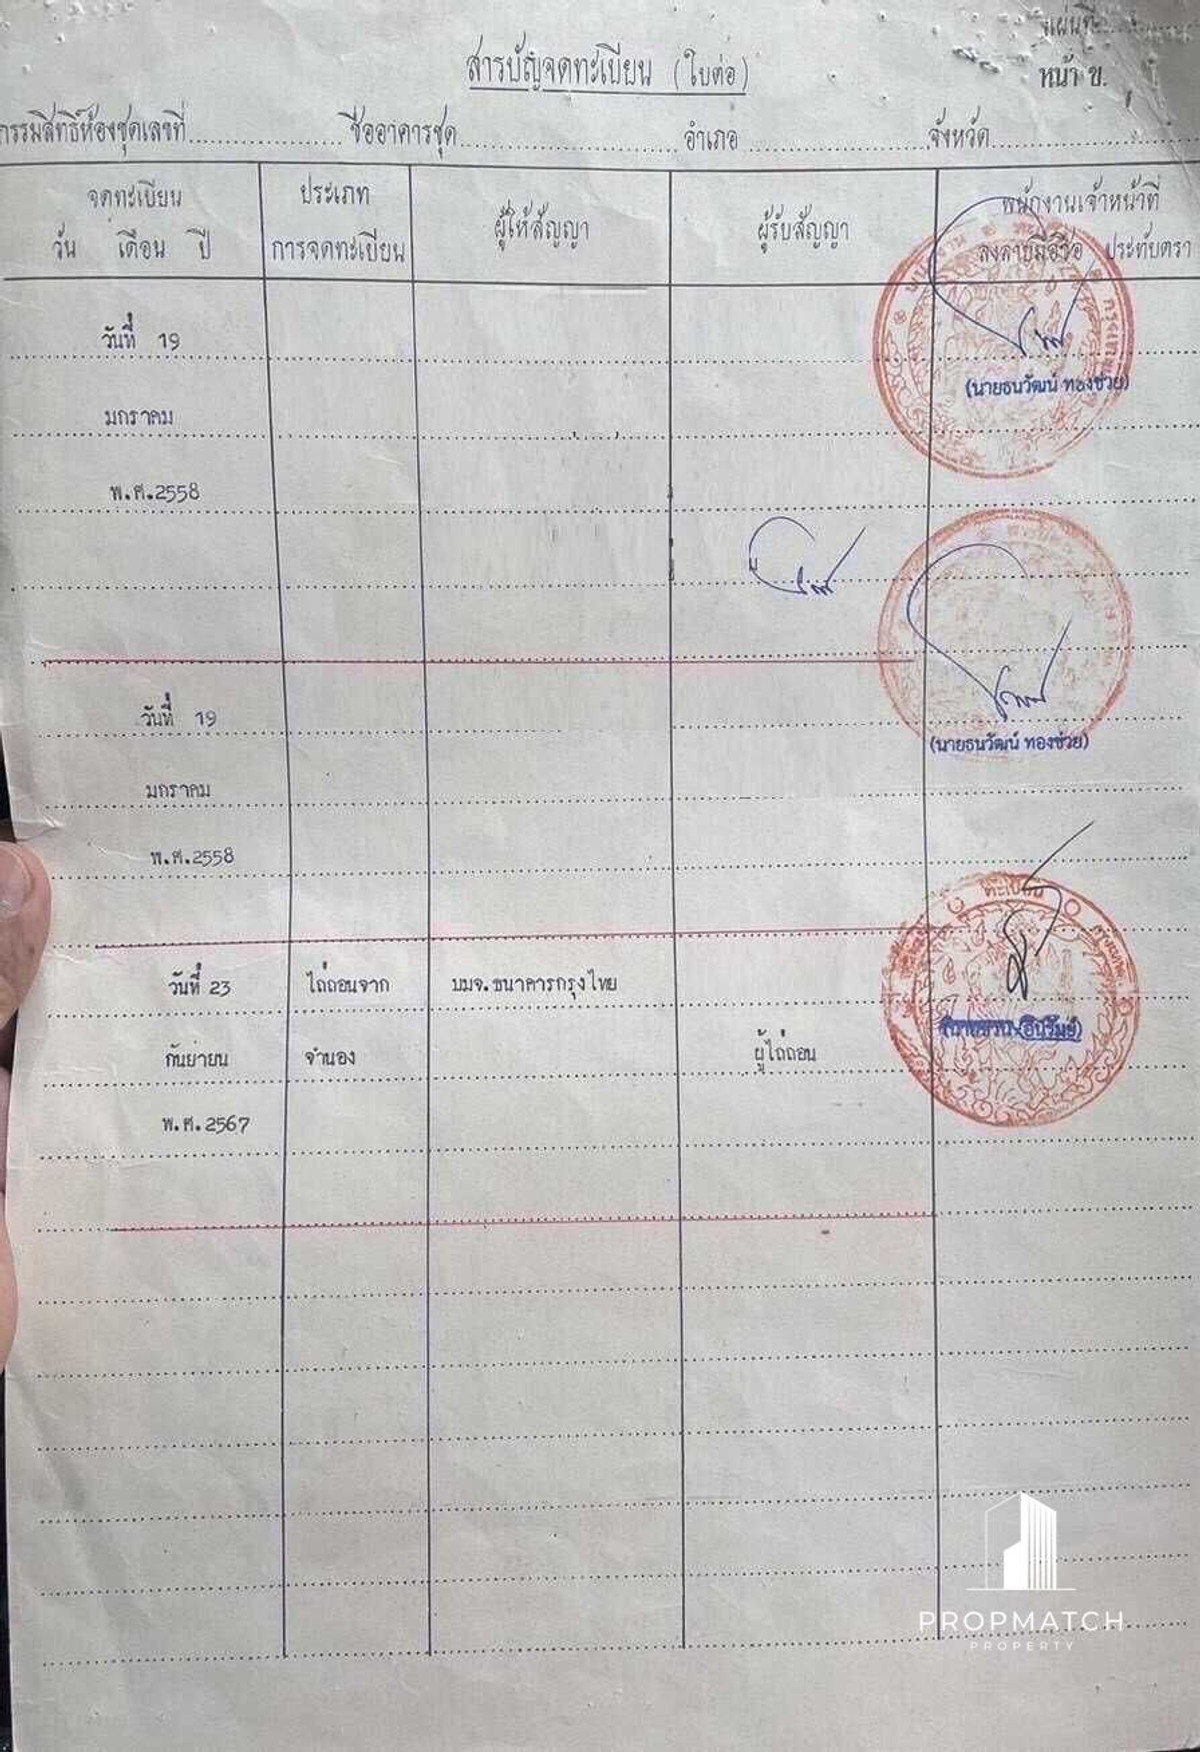 แผ่นที่
หน้า ข.
สารบัญจดทะเบียน (ใบต่อ)
กรรมสิทธิ์ห้องชุดเลขที่ ชื่ออาคารชุด อำเภอ จังหวัด
จดทะเบียน
วัน เดือน ปี
ประเภท
การจดทะเบียน
ผู้ให้สัญญา
ผู้รับสัญญา
พนักงานเจ้าหน้าที่
ลงลายมือชื่อ ประทับตรา
วันที่ 19
(นายธนวัฒน์ ทองช่วย)
มกราคม
พ.ศ.2558
วันที่ 19
(นายธนวัฒน์ ทองช่วย)
มกราคม
พ.ศ.2558
วันที่ 23 ไถ่ถอนจาก บมจ.ธนาคารกรุงไทย
กันยายน จำนอง ผู้ไถ่ถอน
พ.ศ.2567
PROPMATCH
PROPERTY